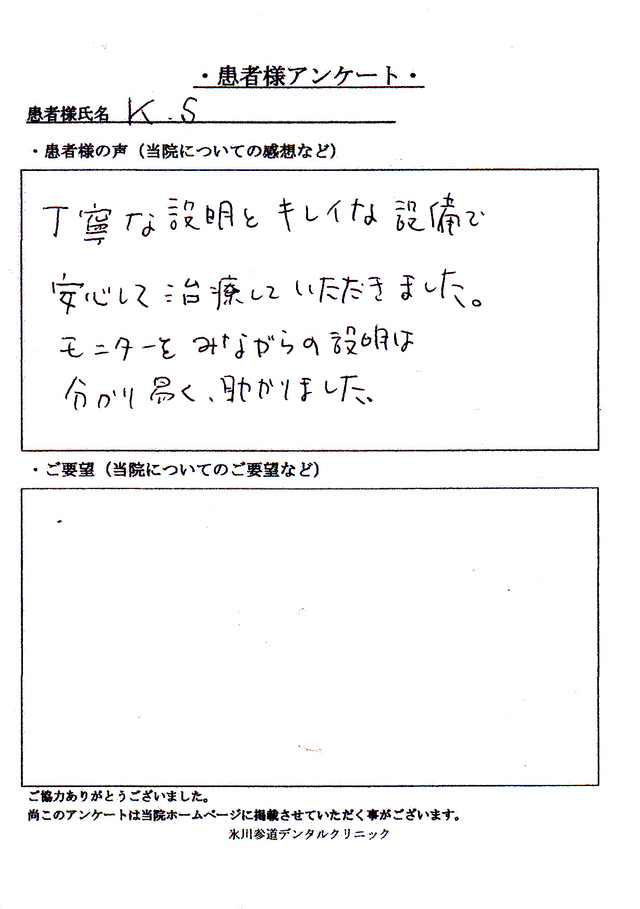 ・患者様アンケート・
患者様氏名 K.S
・患者様の声（当院についての感想など）
丁寧な説明とキレイな設備で
安心して治療していただきました。
モニターをみながらの説明は
分かり易く、助かりました。
・ご要望（当院についてのご要望など）
ご協力ありがとうございました。
尚このアンケートは当院ホームページに掲載させていただく事がございます。
氷川参道デンタルクリニック